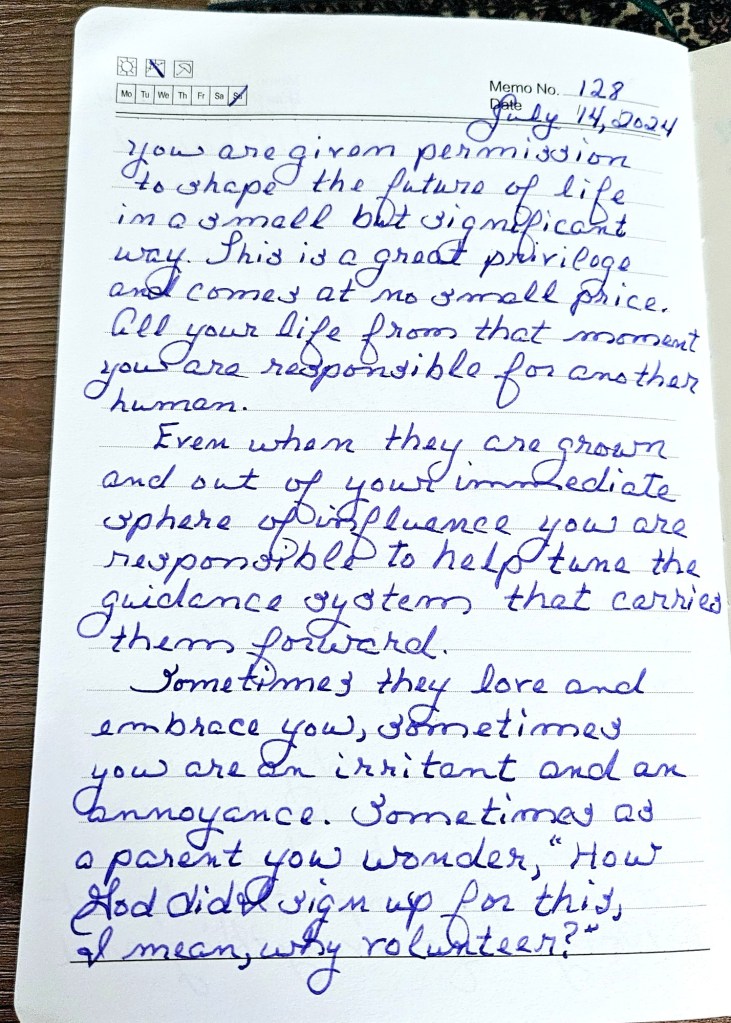 Memo No. 128
Mo Tu We Th Fr Sa Su
Date July 14, 2024
you are given permission
to shape the future of life
in a small but significant
way. This is a great privilege
and comes at no small price.
All your life from that moment
you are responsible for another
human.
Even when they are grown
and out of your immediate
sphere of influence you are
responsible to help tune the
guidance system that carries
them forward.
Sometimes they love and
embrace you, sometimes
you are an irritant and an
annoyance. Sometimes as
a parent you wonder, "How
God did I sign up for this,
I mean, why volunteer?"